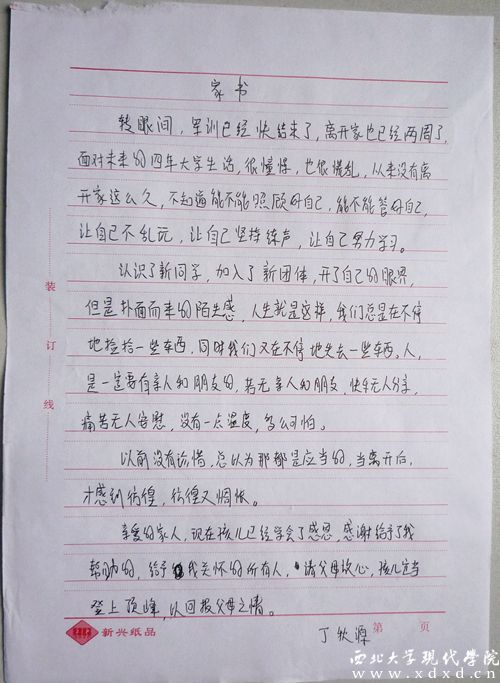 家书
转眼间，军训已经快结束了，离开家也已经两周了，
面对未来的四年大学生活，很憧憬，也很慌乱，从来没有离
开家这么久，不知道能不能照顾好自己，能不能管好自己，
让自己不乱玩，让自己坚持练声，让自己努力学习。
认识了新同学，加入了新团体，开了自己的眼界，
但是扑面而来的陌生感，人生就是这样，我们总是在不停
地捡拾一些东西，同时我们又在不停地失去一些东西。人，
是一定要有亲人和朋友的，若无亲人和朋友，快乐无人分享，
痛苦无人安慰，没有一点温度，多么可怕。
以前没有珍惜，总认为那都是应当的，当离开后，
才感到彷徨，彷徨又惆怅。
亲爱的家人，现在孩儿已经学会了感恩，感谢给予了我
帮助的，给予我关怀的所有人，请父母放心，孩儿定当
登上顶峰，以回报父母之情。
丁钦源
装
订
线
新兴纸品
第 页
西北大学现代学院
www.xdxd.cn